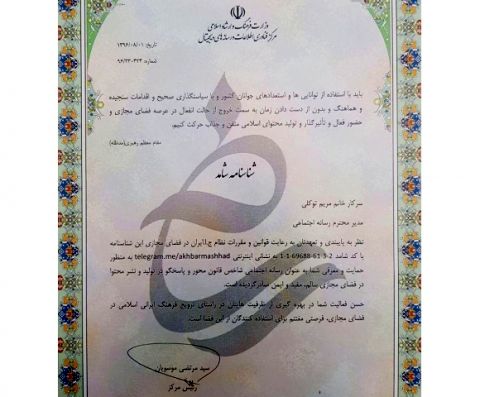 وزارت فرهنگ و ارشاد اسلامی
مرکز فناوری اطلاعات و رسانه‌های دیجیتال
تاریخ: ۱۳۹۶/۰۸/۰۱
شماره: ۹۶/۲۳-۴۲۴
باید با استفاده از توانایی ها و استعدادهای جوانان کشور و با سیاستگذاری صحیح و اقدامات سنجیده
و هماهنگ و بدون از دست دادن زمان به سمت خروج از حالت انفعال در عرصه فضای مجازی و
حضور فعال و تأثیرگذار و تولید محتوای اسلامی متقن و جذاب حرکت کنیم.
مقام معظم رهبری(مدظله)
شناسنامه شامد
سرکار خانم مریم توکلی
مدیر محترم رسانه اجتماعی
نظر به پایبندی و تعهدتان به رعایت قوانین و مقررات نظام ج.ا.ایران در فضای مجازی این شناسنامه
با کد شامد 1-1-69688-61-3-2 به نشانی اینترنتی telegram.me/akhbarmashhad به منظور
حمایت و معرفی شما به عنوان رسانه اجتماعی شاخص قانون محور و پاسخگو در تولید و نشر محتوا
در فضای مجازی سالم، مفید و ایمن صادرگردیده است.
حسن فعالیت شما در بهره گیری از ظرفیت هایتان در راستای ترویج فرهنگ ایرانی اسلامی در
فضای مجازی، فرصتی مغتنم برای استفاده کنندگان از این فضا است.
سید مرتضی موسویان
رئیس مرکز